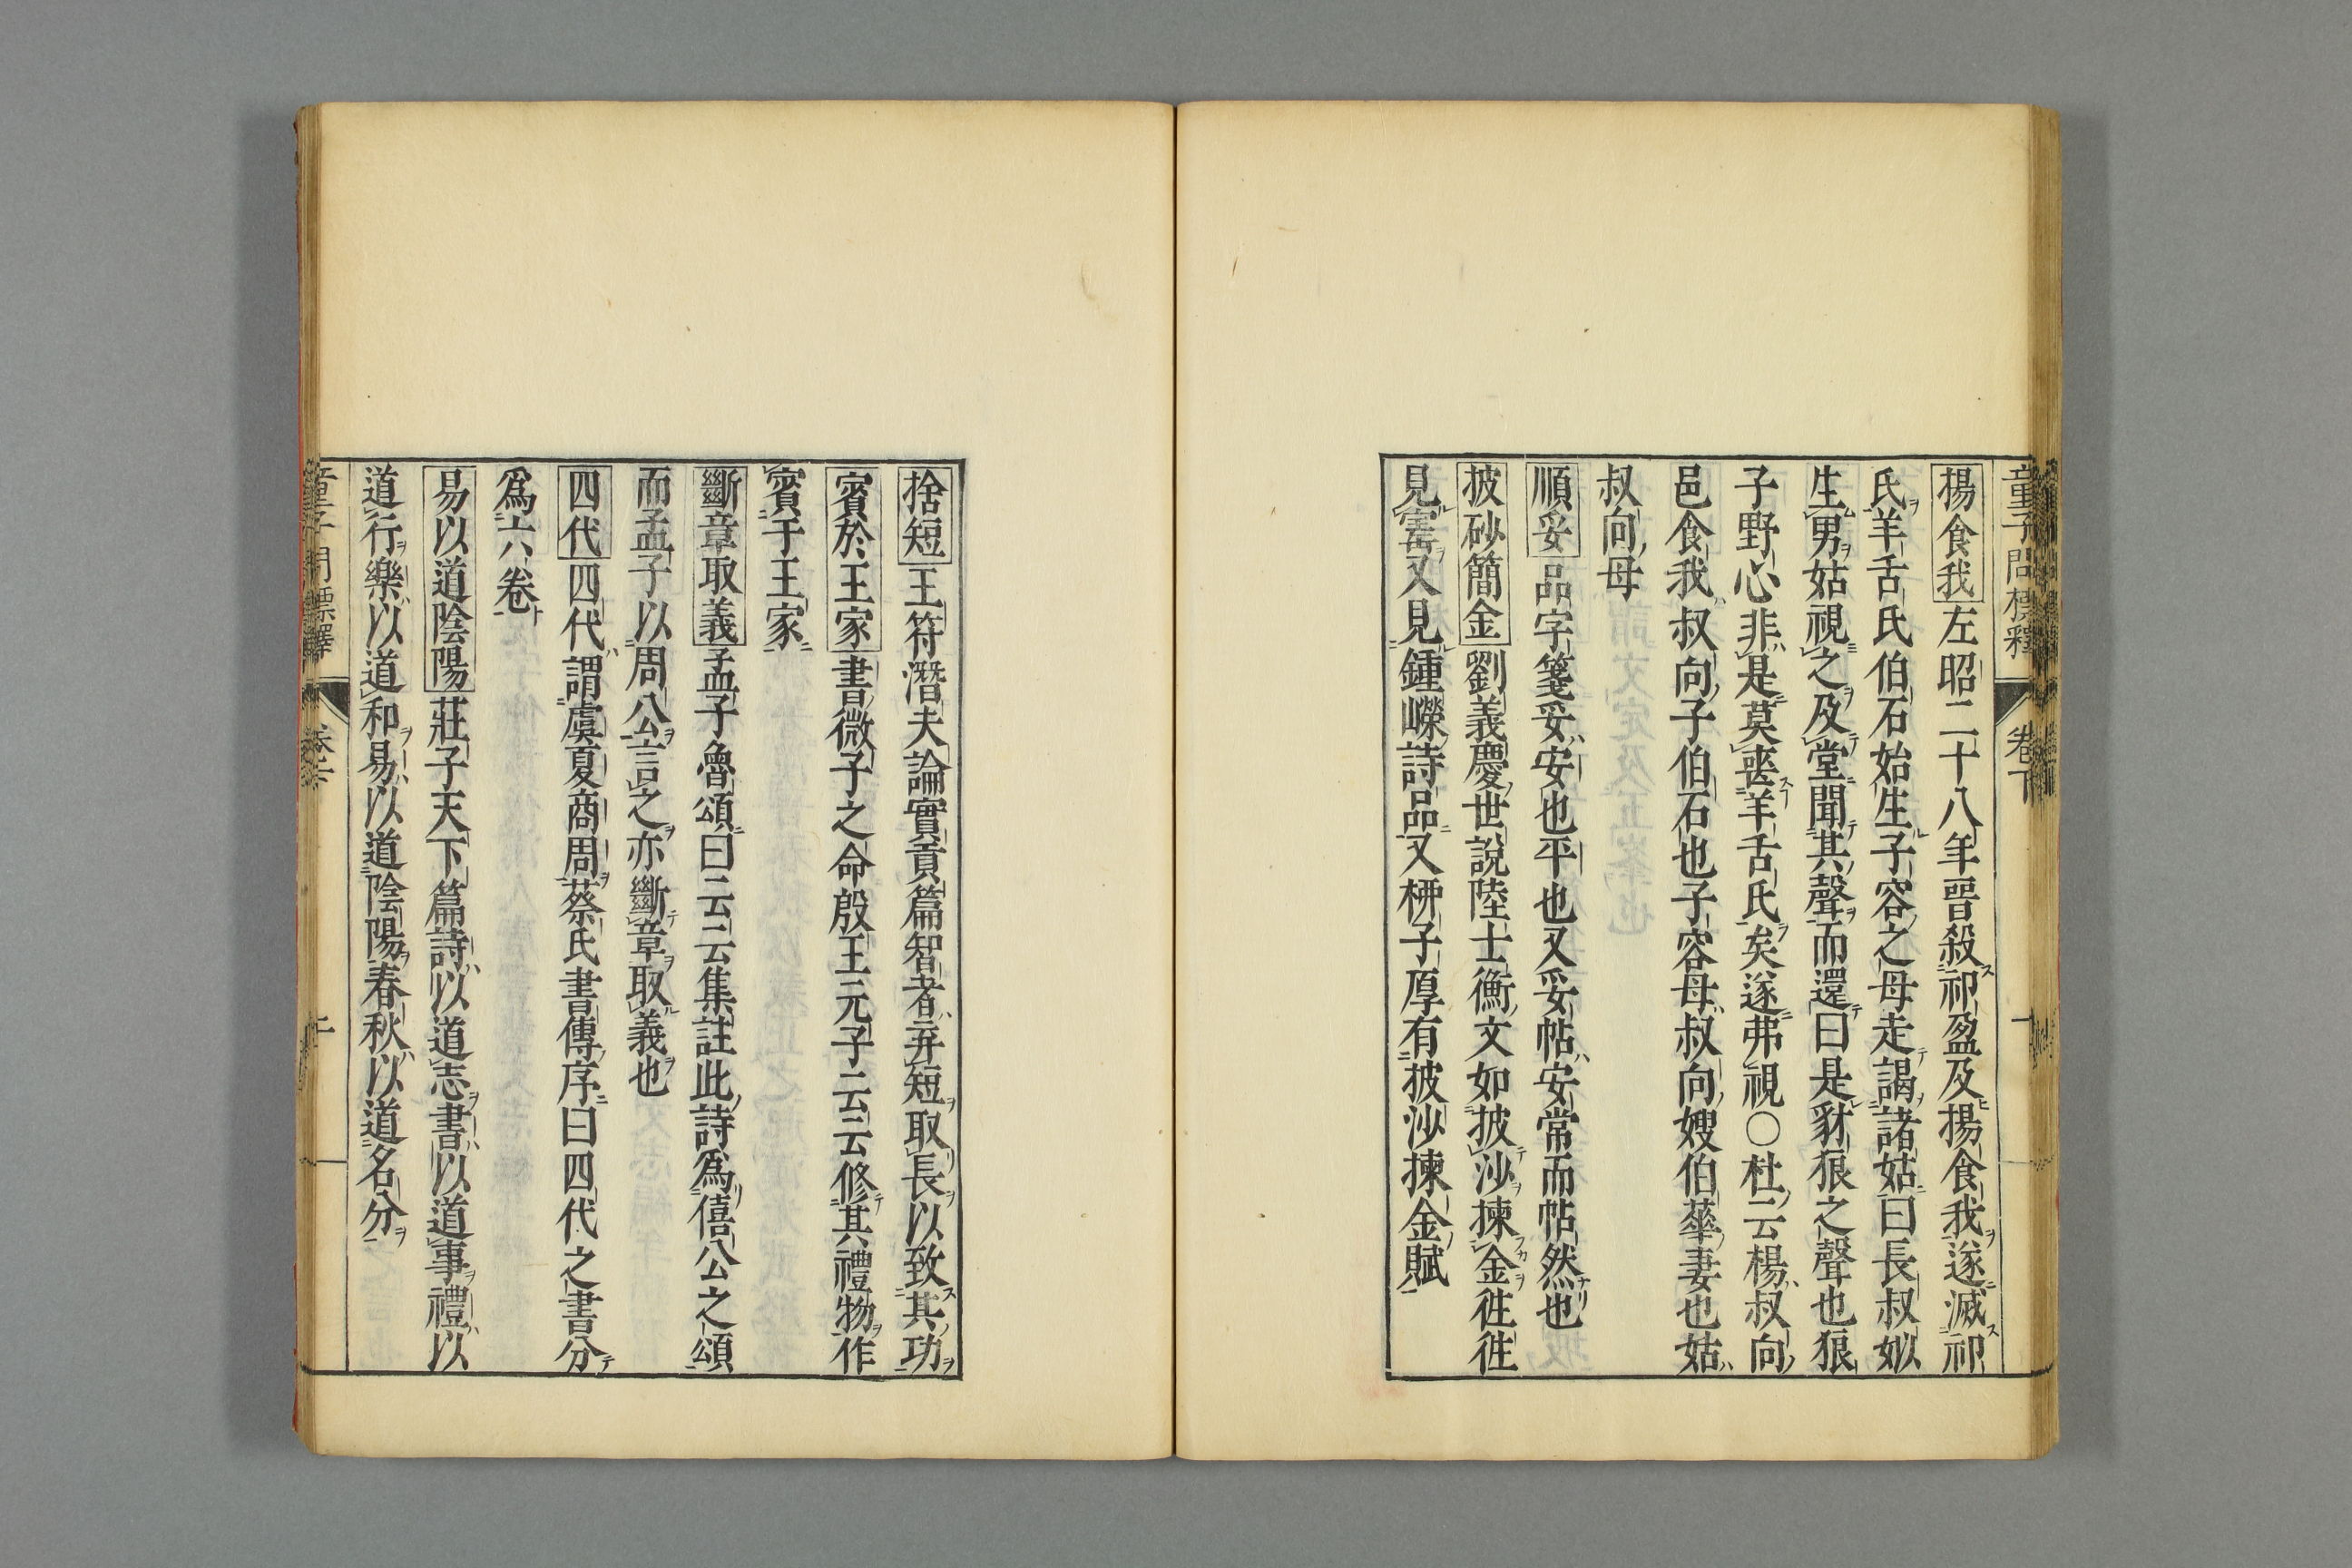 童子問標釋 卷下 一
揚食我左昭二十八年晋殺祁盈及揚食我遂滅祁
氏羊舌氏伯石始生子容之母走謁諸姑曰長叔姒
生男姑視之及堂聞其聲而還曰是豺狼之聲也狼
子野心非是莫喪羊舌氏矣遂弗視〇杜云楊叔向
邑食我叔向子伯石也子容母叔向嫂伯華妻也姑
叔向母
順妥品字箋妥安也平也又妥帖安常而帖然也
披砂簡金劉義慶世說陸士衡文如披沙揀金徃徃
見寳又見鍾嶸詩品又桺子厚有披沙揀金賦
捨短王符潛夫論實貢篇智者弃短取長以致其功
賓於王家書微子之命殷王元子云云修其禮物作
賓于王家
斷章取義孟子魯頌曰云云集註此詩爲僖公之頌
而孟子以周公言之亦斷章取義也
四代四代謂虞夏商周蔡氏書傳序曰四代之書分
爲六卷
易以道陰陽莊子天下篇詩以道志書以道事禮以
道行樂以道和易以道陰陽春秋以道名分
童子問標釋